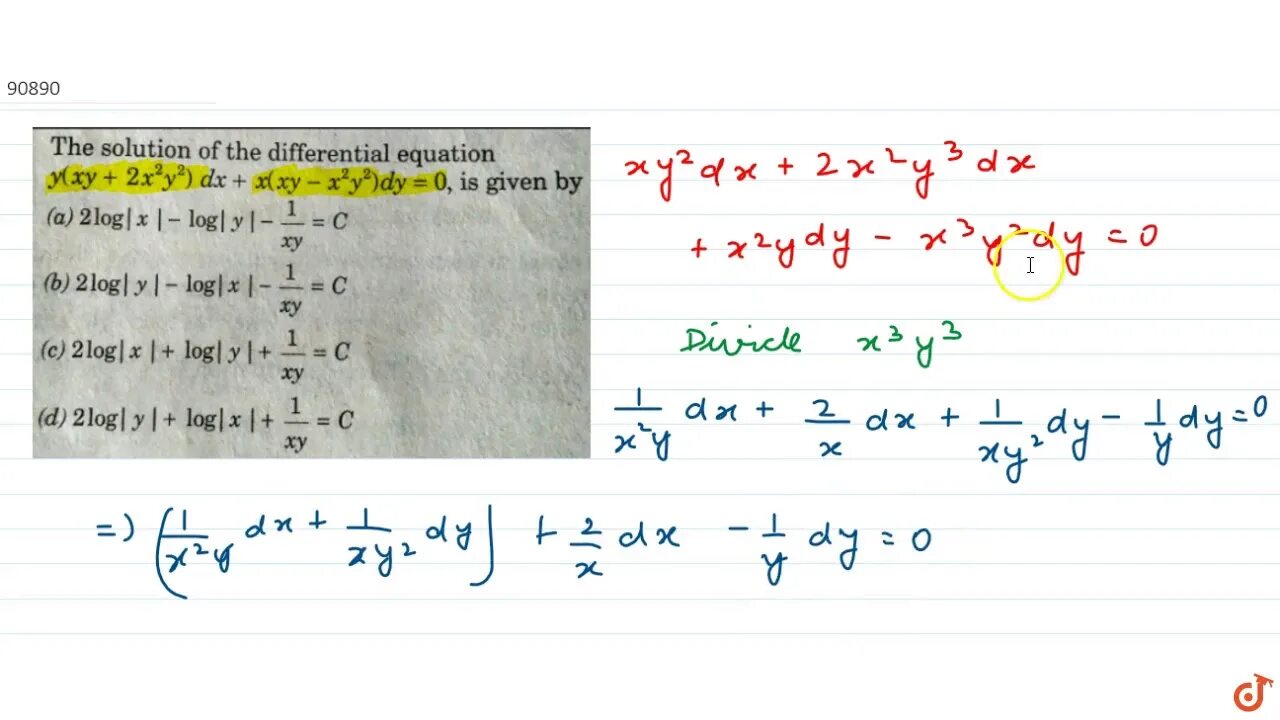 90890
The solution of the differential equation
y(xy + 2x²y²) dx + x(xy − x²y²)dy = 0, is given by
(a) 2log| x | − log| y | − 1/xy = C
(b) 2log| y | − log| x | − 1/xy = C
(c) 2log| x | + log| y | + 1/xy = C
(d) 2log| y | + log| x | + 1/xy = C
xy²dx + 2x²y³dx
+ x²ydy − x³y²dy = 0
Divide x³y³
1/x²y dx + 2/x dx + 1/xy² dy − 1/y dy = 0
=) (1/x²y dx + 1/xy² dy) + 2/x dx − 1/y dy = 0